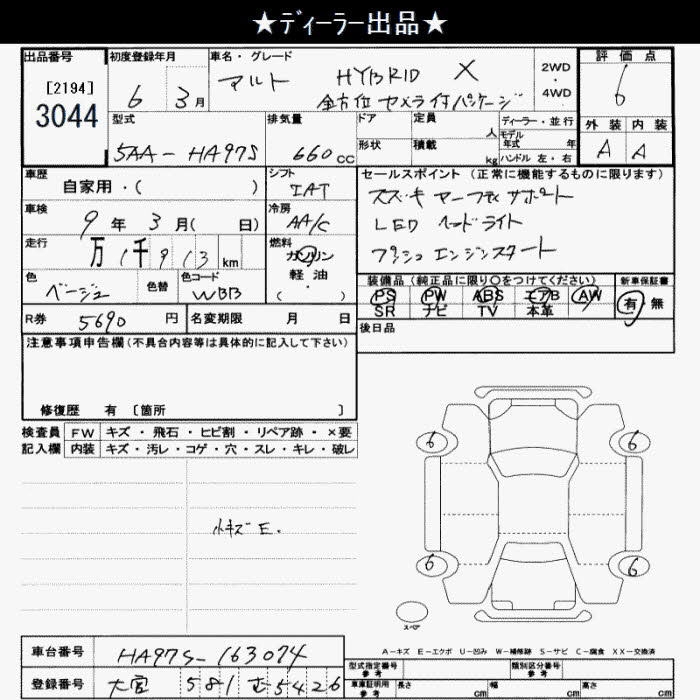 ★ディーラー出品★
出品番号 初度登録年月 車名・グレード 評価点
[2194] アルト HYBRID X 2WD・4WD
3044 6 3月 全方位カメラ付パッケージ 6
型式 排気量 ドア 定員 人 ディーラー・並行 外装 内装
5AA-HA97S 660cc 形状 積載 kg モデル年式 年 ハンドル 左・右 A A
車歴 シフト セールスポイント (正常に機能するものに限ります)
自家用・( ) IAT スズキ セーフティサポート
車検 冷房 LED ヘッドライト
9年 3月( 日) AA/C プッシュ エンジンスタート
走行 燃料
万 1千 9 1 3 km ガソリン
色 色替 色コード 軽油 装備品 (純正品に限り〇をつけてください) 新車保証書
ベージュ WBB ( ) PS PW ABS エアB AW 有・無
SR ナビ TV 本革
R券 5690円 名変期限 月 日 後日品
注意事項申告欄 (不具合内容等は具体的に記入して下さい)
修復歴 有 [箇所 ]
検査員 FW キズ・飛石・ヒビ割・リペア跡・×要
記入欄 内装 キズ・汚レ・コゲ・穴・スレ・キレ・破レ
小キズ E.
6 6
6 6
スペア
A-キズ E-エクボ U-凹み W-補修跡 S-サビ C-腐食 XX-交換済
車台番号 HA97S-163074 型式指定番号 参考 類別区分番号 参考
登録番号 大宮 581 5426 車庫証明用 参考 長さ cm 幅 cm 高さ cm